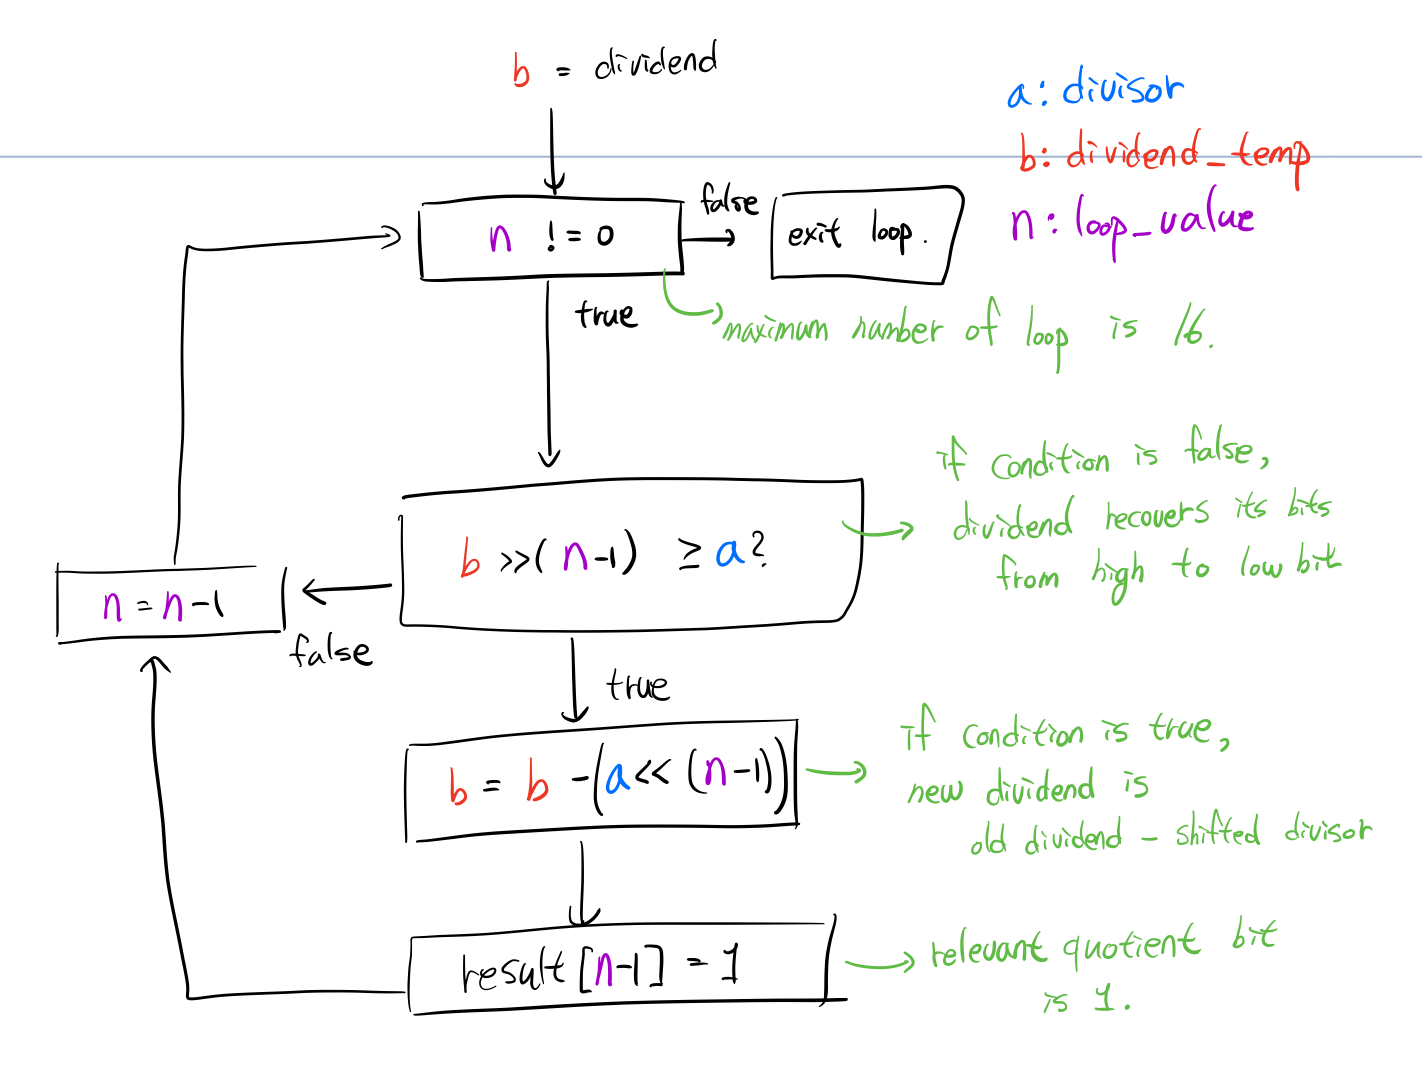 b = dividend
a: divisor
b: dividend_temp
n: loop_value
n != 0
false
exit loop.
true
maximum number of loop is 16.
if condition is false,
dividend recovers its bits
from high to low bit
b >>(n-1) ≥ a?
n = n-1
false
true
b = b -(a<< (n-1))
if condition is true,
new dividend is
old dividend - shifted divisor
result[n-1] = 1
relevant quotient bit
is 1.